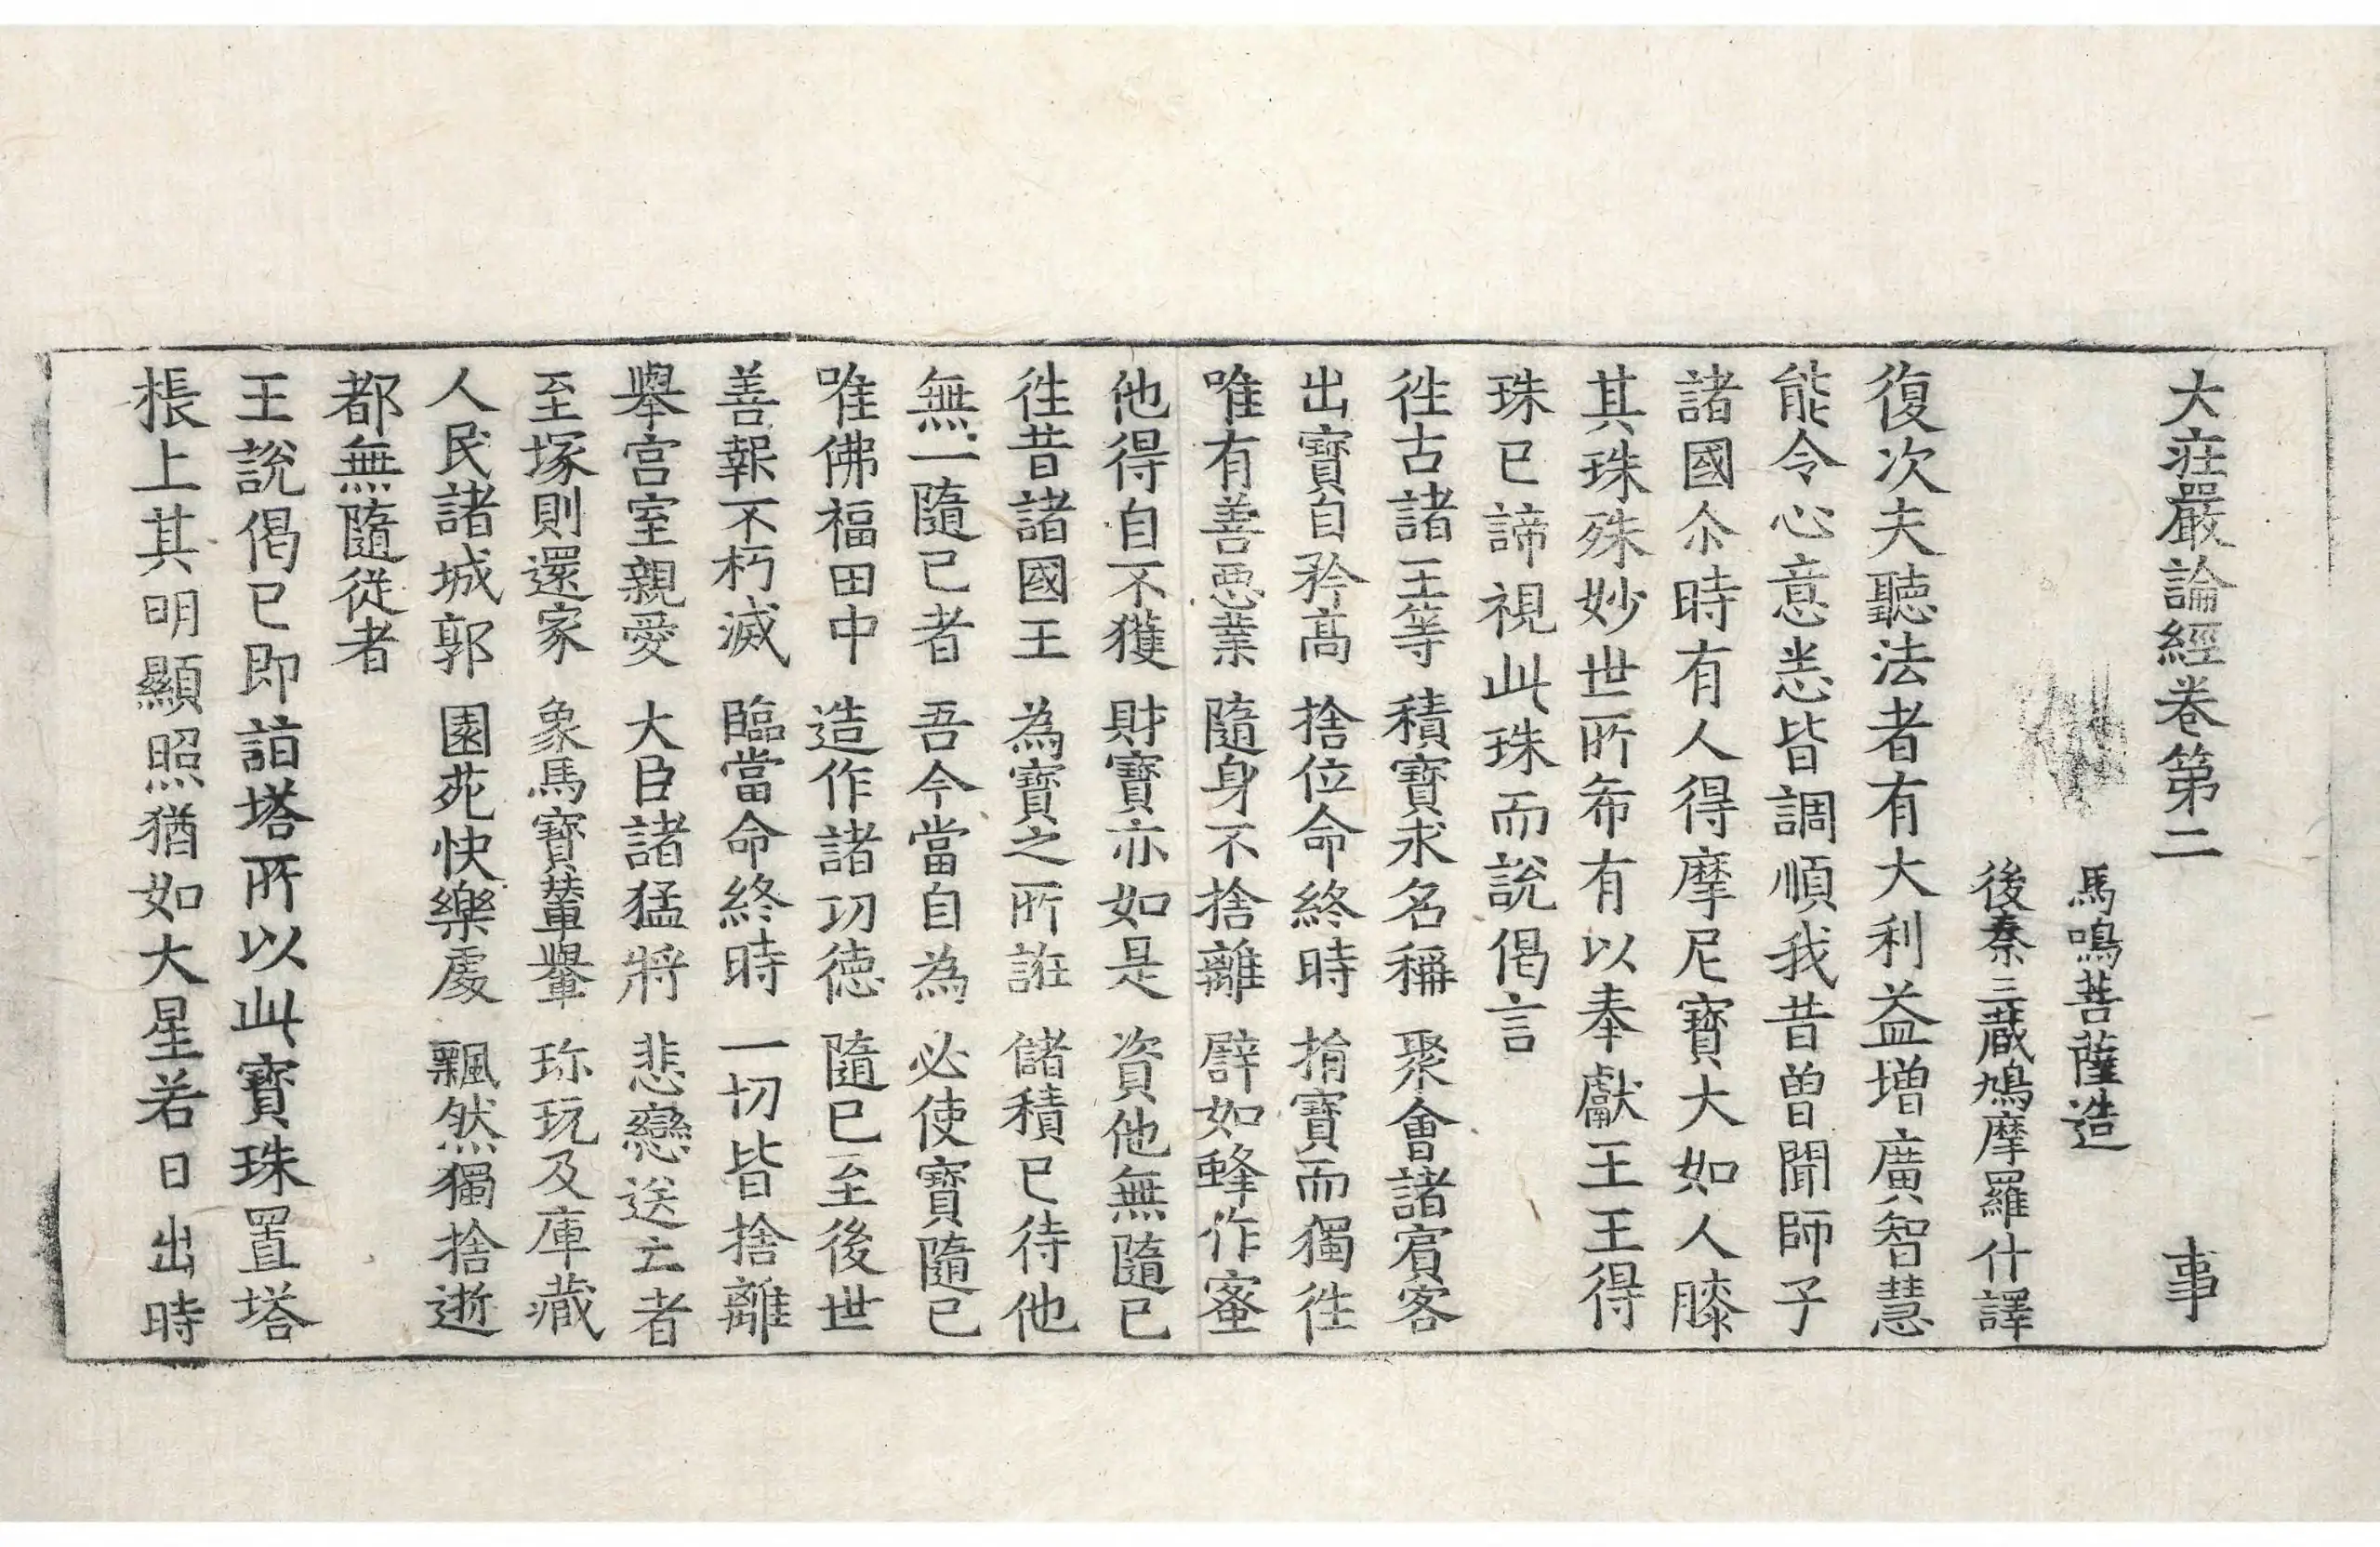 大莊嚴論經卷第二　事
馬鳴菩薩造
後秦三藏鳩摩羅什譯
復次夫聽法者有大利益增廣智慧
能令心意悉皆調順我昔曾聞師子
諸國尒時有人得摩尼寶大如人膝
其珠殊妙世所希有以奉獻王王得
珠已諦視此珠而說偈言
徃古諸王等　積寶求名稱　聚會諸賓客
出寶自矜高　捨位命終時　捐寶而獨徃
唯有善惡業　隨身不捨離　譬如蜂作蜜
他得自不獲　財寶亦如是　資他無隨已
徃昔諸國王　為寶之所誑　儲積已待他
無一隨已者　吾今當自為　必使寶隨已
唯佛福田中　造作諸功德　隨已至後世
善報不朽滅　臨當命終時　一切皆捨離
舉宮室親愛　大臣諸猛將　悲戀送亡者
至塚則還家　象馬寶輦轝　珎玩及庫藏
人民諸城郭　園苑快樂處　飄然獨捨逝
都無隨從者
王說偈已即詣塔所以此寶珠置塔
棖上其明顯照猶如大星若日出時